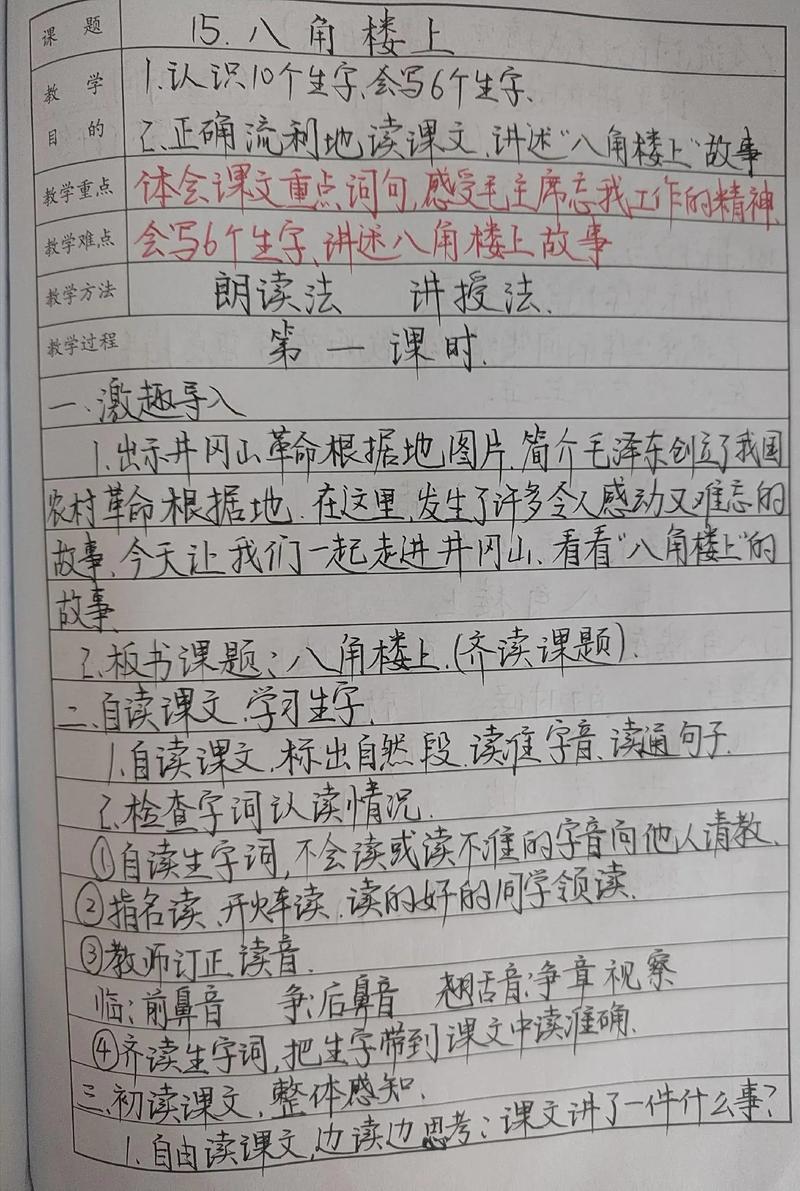 课题 15.八角楼上
教学目的 1.认识10个生字、会写6个生字、
2.正确流利地读课文、讲述"八角楼上"故事
教学重点 体会课文重点词句,感受毛主席忘我工作的精神、
教学难点 会写6个生字、讲述八角楼上故事
教学方法 朗读法 讲授法、
教学过程 第一课时.
一、激趣导入
1.出示井冈山革命根据地图片、简介毛泽东创立了我国
农村革命根据地、在这里,发生了许多令人感动又难忘的
故事、今天让我们一起走进井冈山、看看"八角楼上"的
故事、
2.板书课题:八角楼上、(齐读课题).
二、自读课文、学习生字、
1.自读课文、标出自然段、读准字音、读通句子.
2.检查字词认读情况.
①自读生字词,不会读或读不准的字音向他人请教、
②指名读、开火车读、读的好的同学领读、
③教师订正读音.
临:前鼻音 争:后鼻音 翘舌音:争章视察
④齐读生字词,把生字带到课文中读准确.
三、初读课文,整体感知.
1.自由读课文,边读边思考:课文讲了一件什么事?